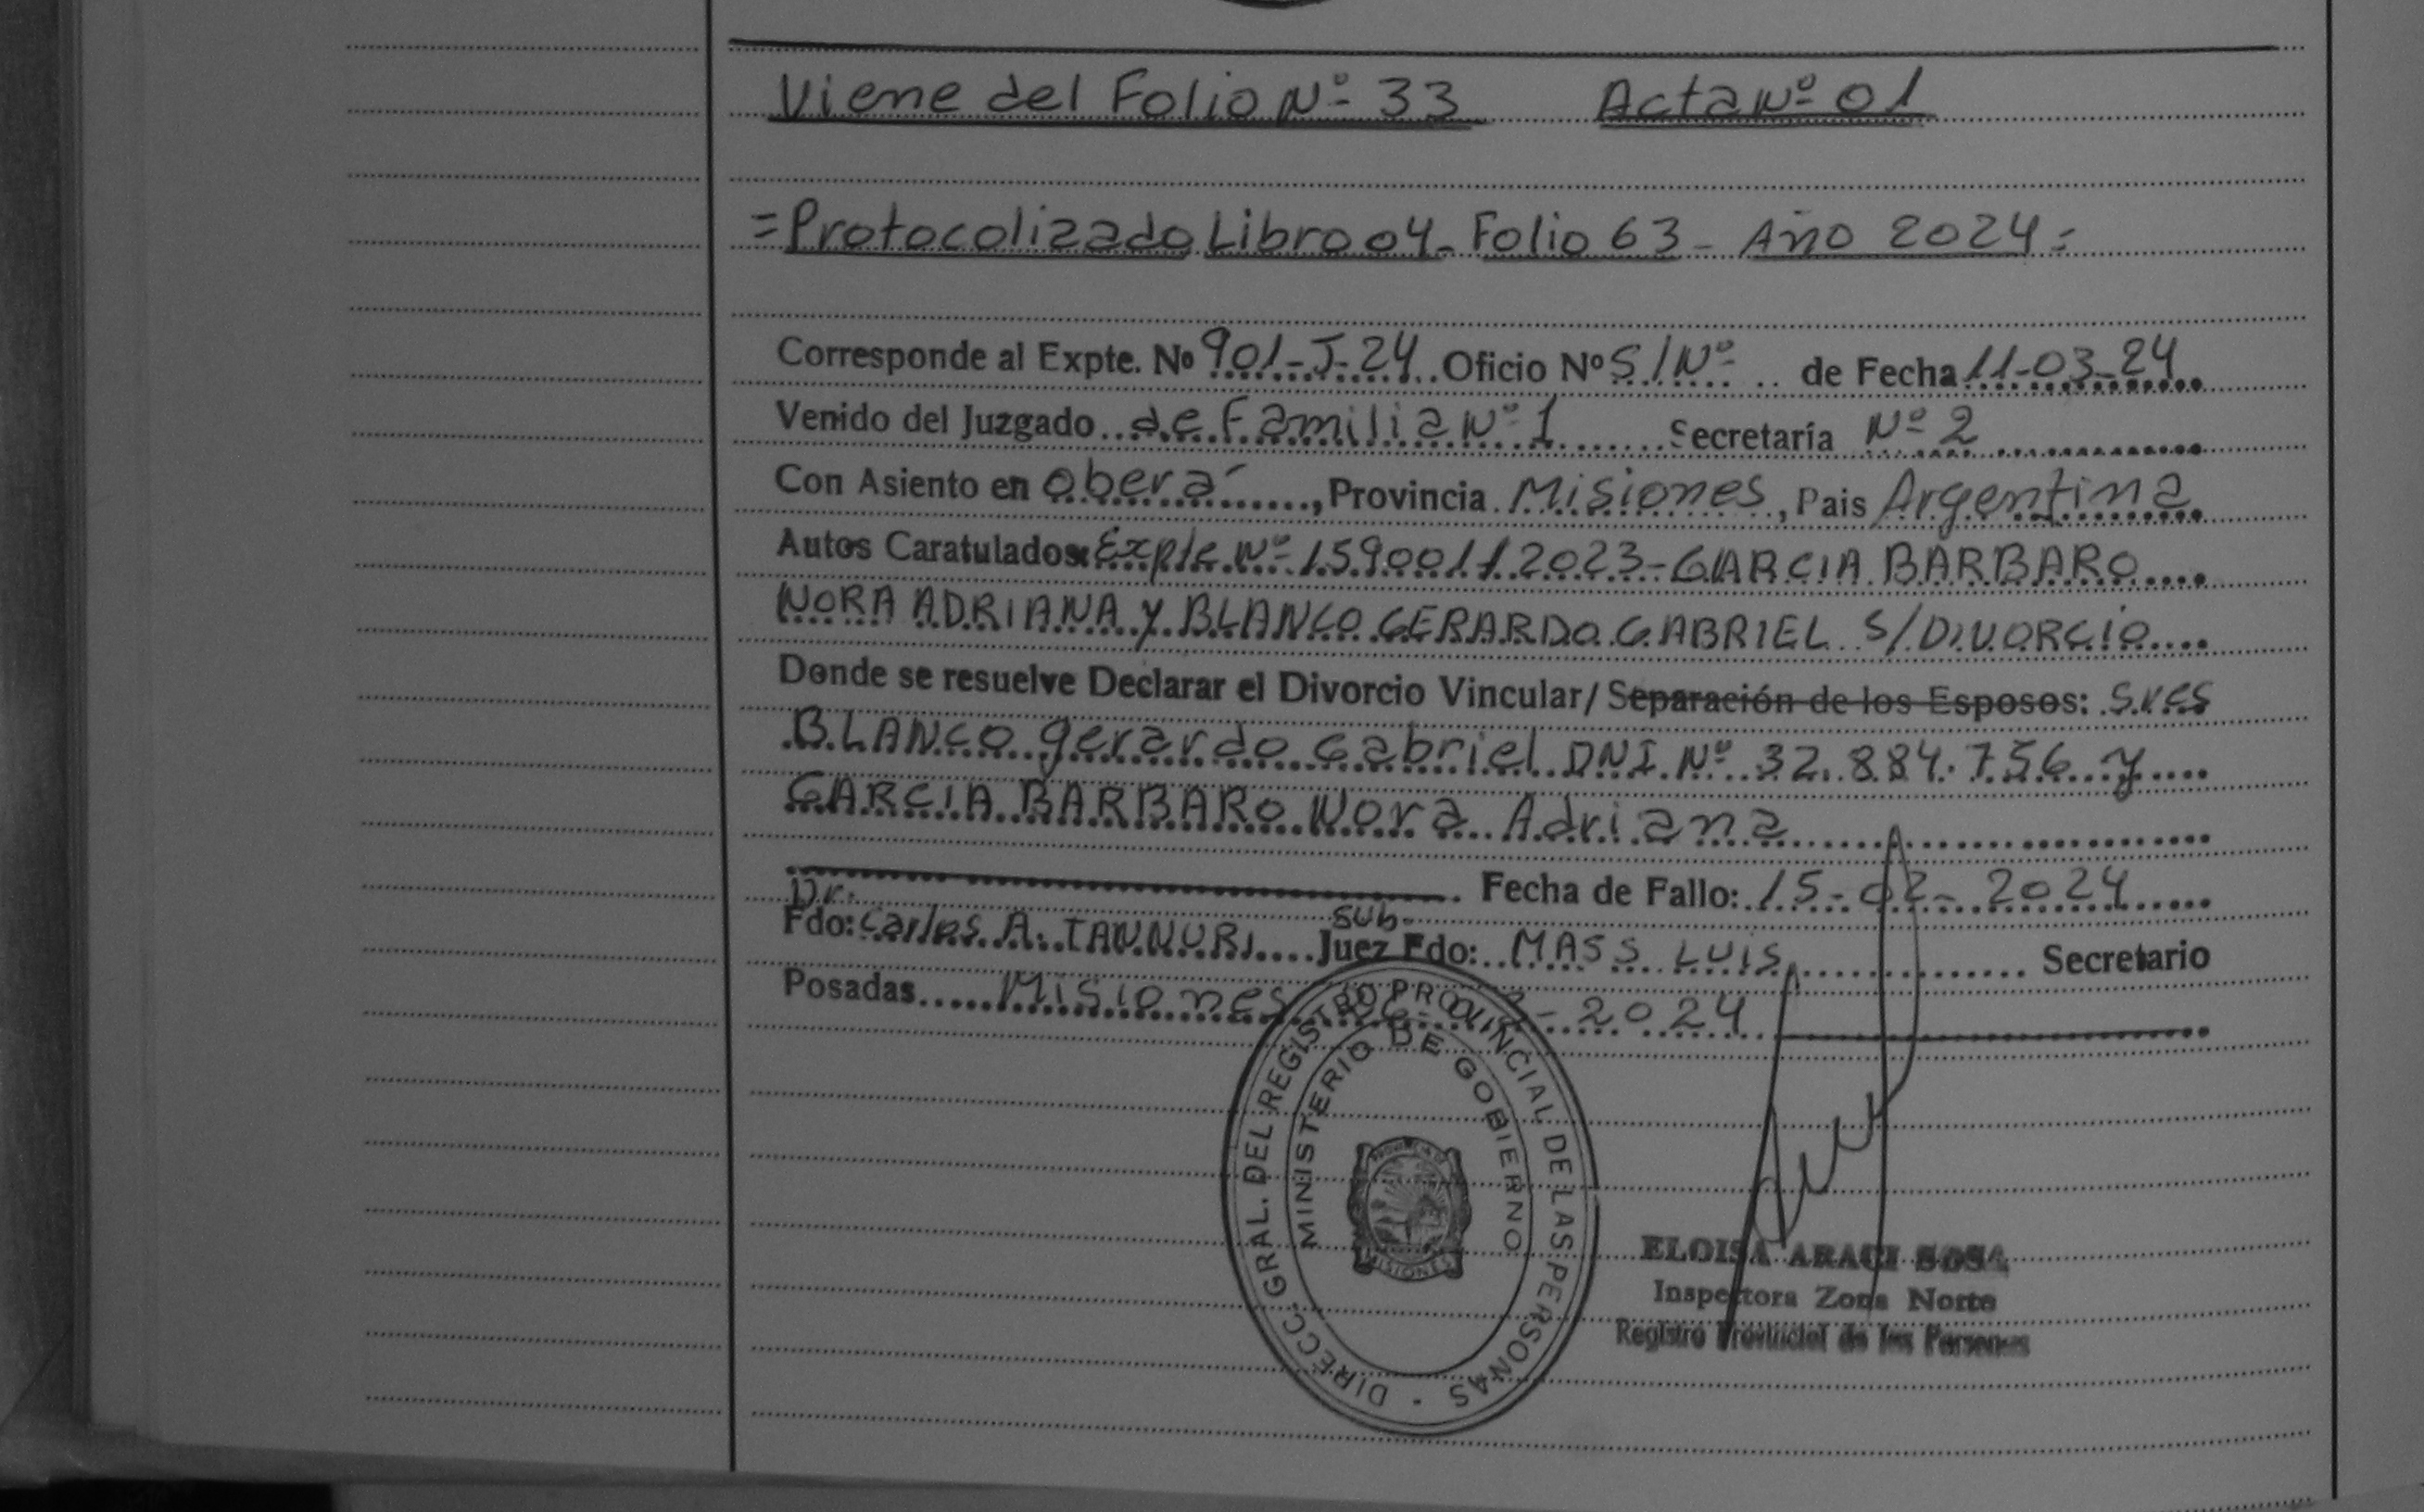 Viene del Folio Nº 33 Acta Nº 01
=Protocolizado Libro 04- Folio 63- Año 2024=
Corresponde al Expte. Nº 901-J-24 Oficio Nº S/Nº de Fecha 11-03-24
Venido del Juzgado de Familia Nº 1 Secretaría Nº 2
Con Asiento en oberá, Provincia Misiones, Pais Argentina
Autos Caratulados: Expte. Nº 159001/2023-GARCIA BARBARO
NORA ADRIANA Y BLANCO GERARDO GABRIEL S/DIVORCIO
Donde se resuelve Declarar el Divorcio Vincular/ Separación de los Esposos: Sres
BLANCO gerardo Gabriel DNI Nº 32.884.756 y
GARCIA BARBARO Nora Adriana
Fecha de Fallo: 15-02-2024
Dr. Sub-
Fdo: Carlos A. TANNURI Juez Fdo: MASS LUIS Secretario
Posadas Misiones 2024
DIRECC. GRAL. DEL REGISTRO PROVINCIAL DE LAS PERSONAS
MINISTERIO DE GOBIERNO
MISIONES
ELOISA ARACI SOSA
Inspectora Zona Norte
Registro Provincial de las Personas